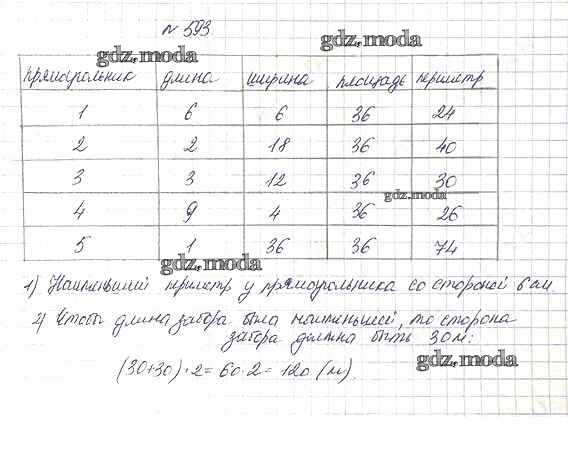 № 593.
gdz.moda
gdz.moda
прямоугольник длина ширина площадь периметр
1 6 6 36 24
2 2 18 36 40
3 3 12 36 30
gdz.moda
4 9 4 36 26
5 1 36 36 74
gdz.moda
1) Наименьший периметр у прямоугольника со стороной 6 см.
2) Чтобы длина забора была наименьшей, то сторона
забора должна быть 30 м:
gdz.moda
(30+30)·2 = 60·2 = 120 (м).